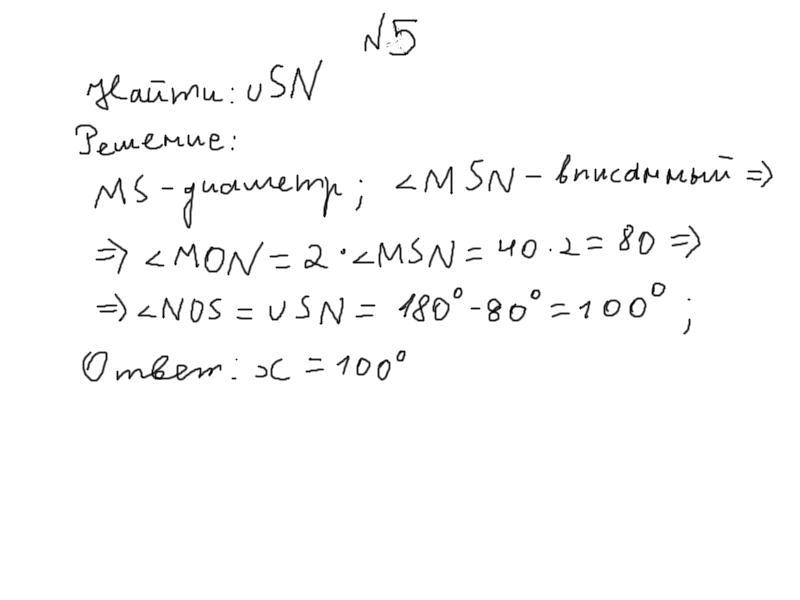 №5
Найти: ∪SN
Решение:
MS - диаметр; ∠MSN - вписанный =>
=> ∠MON = 2 · ∠MSN = 40 · 2 = 80 =>
=> ∠NOS = ∪SN = 180° - 80° = 100°;
Ответ: x = 100°